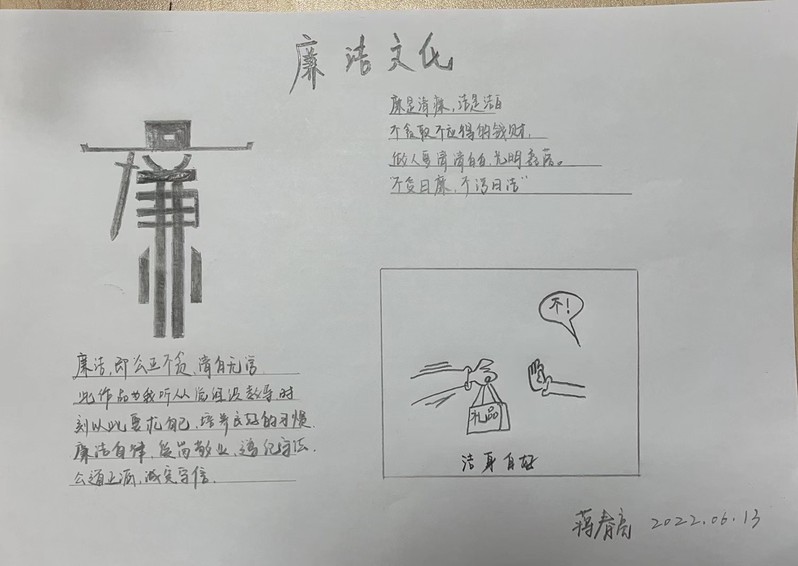 廉洁文化
廉是清廉，洁是洁白
不贪取不应得的钱财，
做人要清清白白，光明磊落。
"不贪曰廉，不污曰洁"
廉
不！
礼品
洁身自好
廉洁，即公正不贪，清白无污
此作品为我听从
刻以此要求自己，培养良好的习惯，
廉洁自律，爱岗敬业，遵纪守法，
公道正派，诚实守信。
蒋春亮 2022.06.13